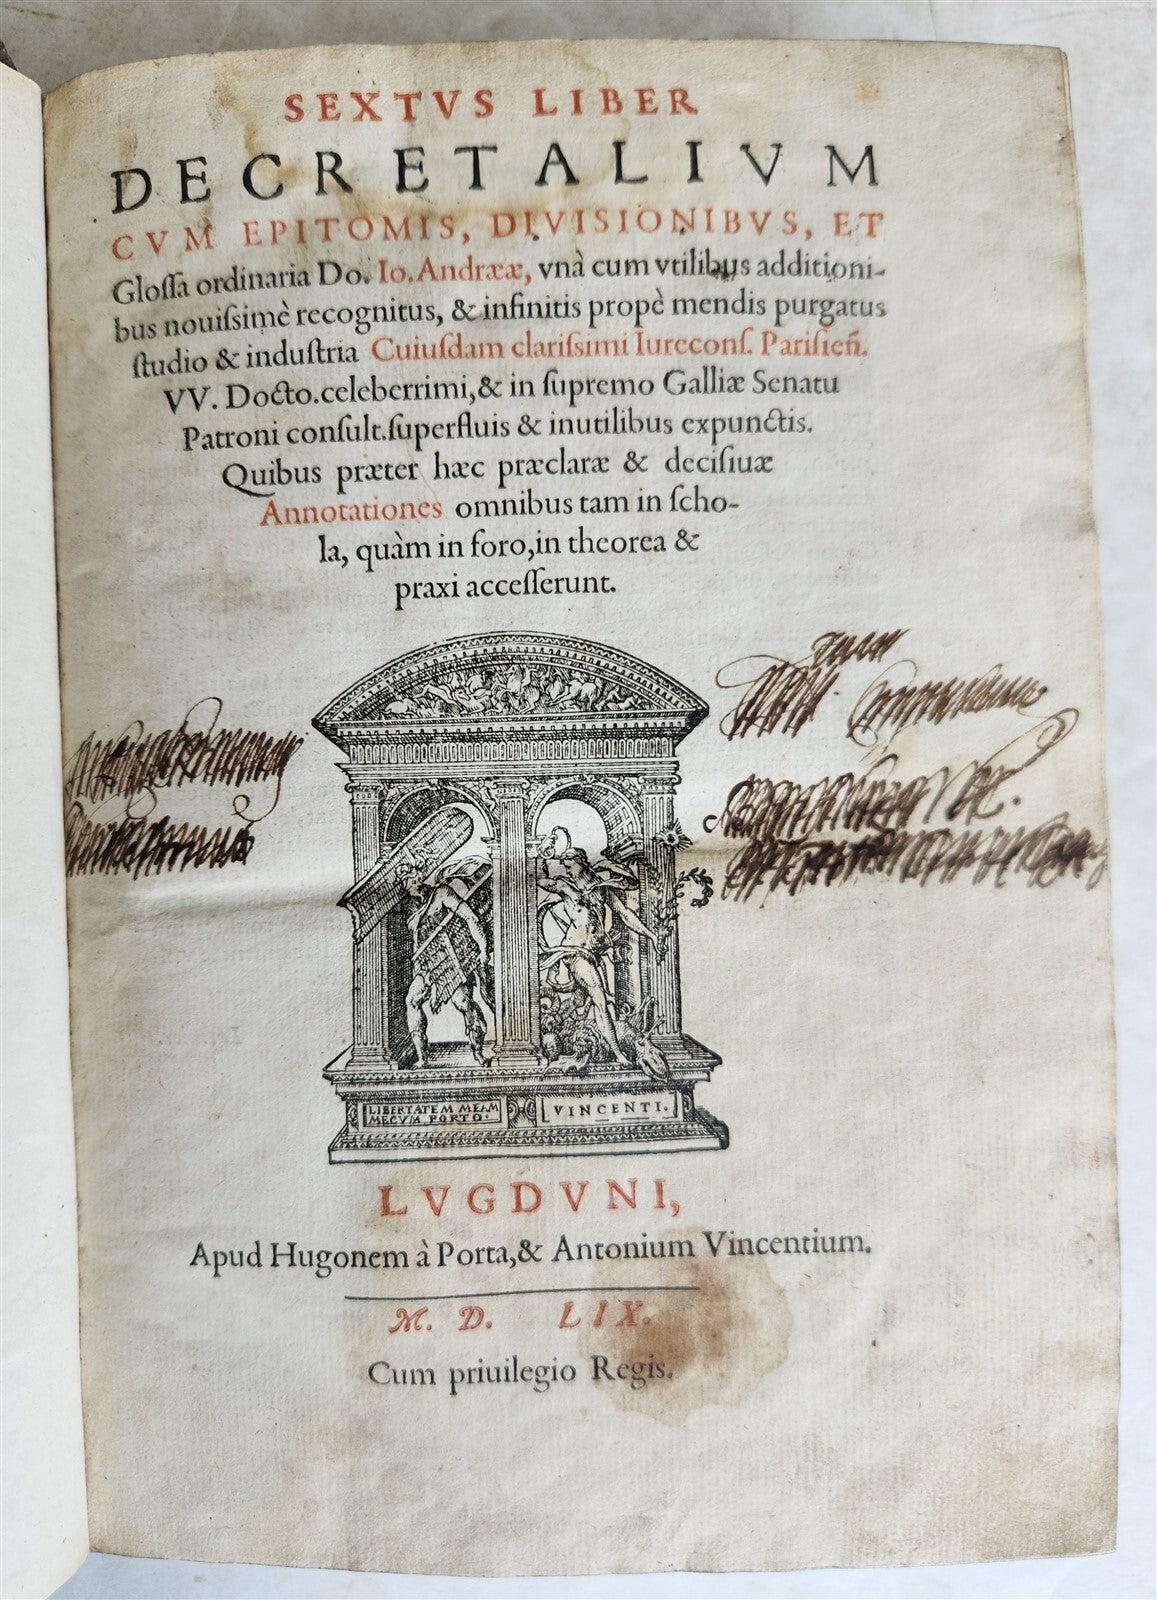 SEXTVS LIBER
DECRETALIVM
CVM EPITOMIS, DIVISIONIBVS, ET
Gloſſa ordinaria Do. Io. Andrææ, vnà cum vtilibus additioni-
bus nouiſsimè recognitus, & infinitis propè mendis purgatus
ſtudio & induſtria Cuiuſdam clariſsimi Iureconſ. Pariſieñ.
VV. Docto. celeberrimi, & in ſupremo Galliæ Senatu
Patroni conſult. ſuperfluis & inutilibus expunctis.
Quibus præter hæc præclaræ & deciſiuæ
Annotationes omnibus tam in ſcho-
la, quàm in foro, in theorea &
praxi acceſſerunt.
LIBERTATEM MEAM
MECVM PORTO.
VINCENTI.
LVGDVNI,
Apud Hugonem à Porta, & Antonium Vincentium.
M. D. LIX.
Cum priuilegio Regis.